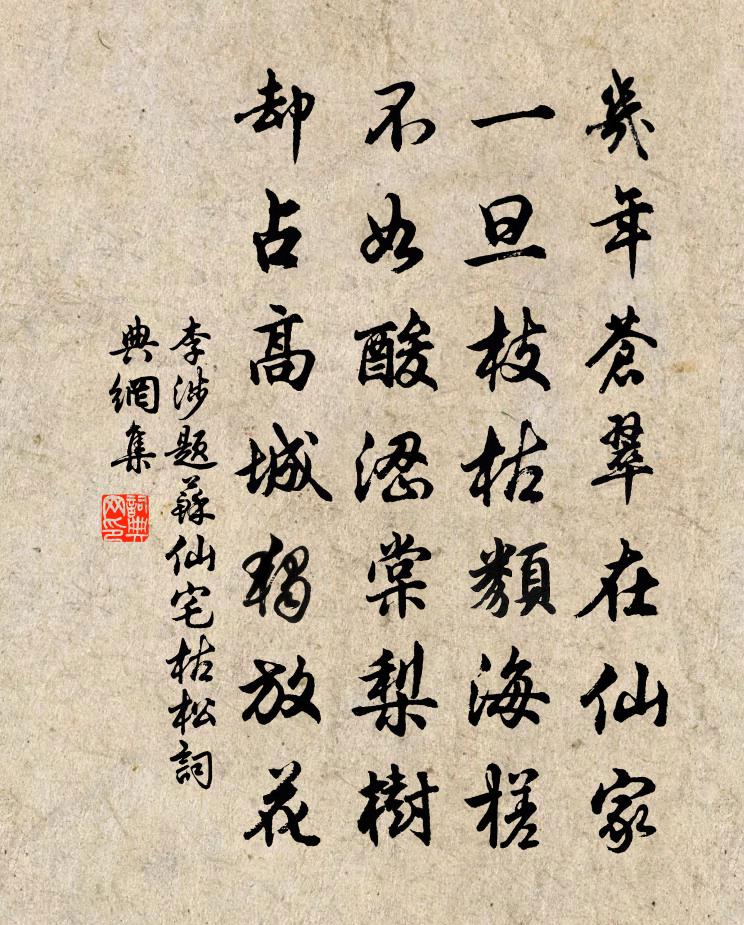 幾年蒼翠在仙家
一旦枝枯類海槎
不如酸澀棠梨樹
却占高城獨放花
李涉題蘇仙宅枯松詞
典網集
詞典
網印